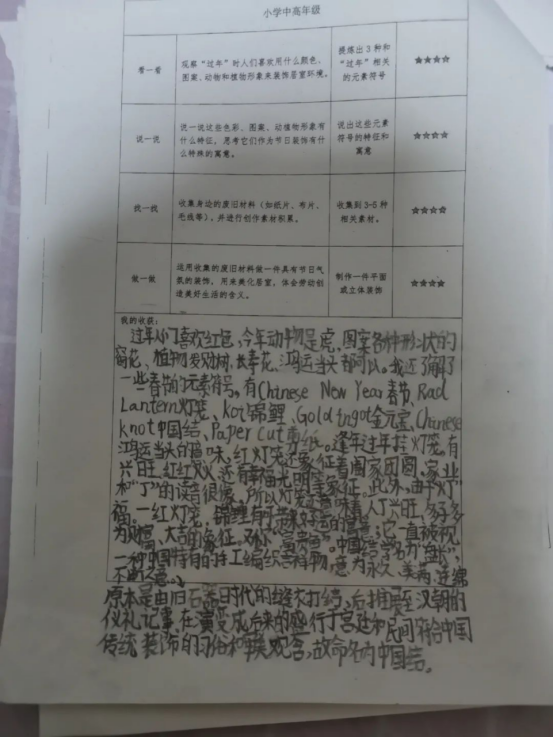 小学中高年级
看一看
观察“过年”时人们喜欢用什么颜色、
图案、动物和植物形象来装饰居室环境。
提炼出3种和
“过年”相关
的元素符号
☆☆☆☆
说一说
说一说这些色彩、图案、动植物形象有
什么特征,思考它们作为节日装饰有什
么特殊的寓意。
说出这些元素
符号的特征和
寓意
☆☆☆☆
找一找
收集身边的废旧材料(如纸片、布片、
毛线等),并进行创作素材积累。
收集到3-5种
相关素材。
☆☆☆☆
做一做
运用收集的废旧材料做一件具有节日气
氛的装饰,用来美化居室,体会劳动创
造美好生活的含义。
制作一件平面
或立体装饰
☆☆☆☆
我的收获:
过年人们喜欢红色,今年动物是虎,图案各种形状的
窗花、植物发财树、长寿花、鸿运当头都可以。我还了解了
一些春节的元素符号。有Chinese New Year春节、Rad
Lantern灯笼、koi锦鲤、Gold ingot金元宝、Chinese
knot中国结、Paper Cut剪纸。逢年过年挂灯笼。有
鸿运当头的意味,红灯笼还象征着阖家团圆、家业
兴旺、红红火火,还有幸福光明等象征。此外,由于“灯”
和“丁”的读音很像,所以灯笼意味着人丁兴旺,多子多
福。一红灯笼,锦鲤有带来好运的寓意。它一直被视
为大吉的象征,
一种中国特有的手工编织吉祥物,意为永久、美满、连绵
不断之意。
原本是由旧石器时代的缝衣打结,后推展至汉朝的
仪礼记事,在演变成后来的盛行于宫廷和民间 符合中国
传统装饰的习俗和审美观念,故命名为中国结。